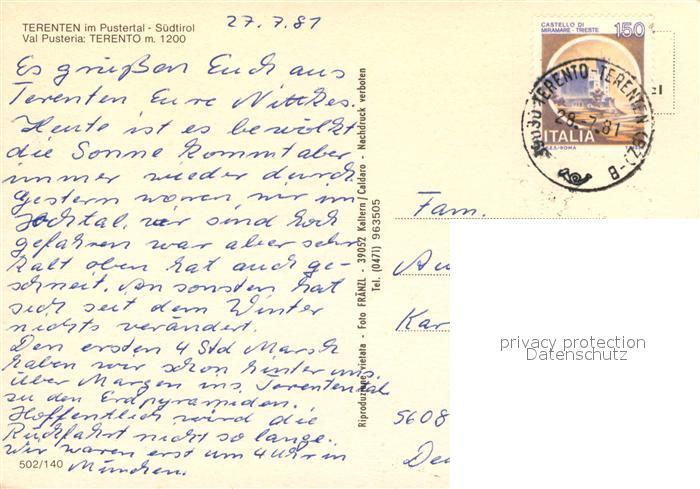 TERENTEN im Pustertal - Südtirol
Val Pusteria: TERENTO m. 1200
27.7.81
Es grüßen Euch aus
Terenten Eure Nittkes.
Heute ist es bewölkt
die Sonne kommt aber
immer wieder durch
gestern waren wir im
Jochtal, wir sind hoch
gefahren war aber sehr
kalt oben hat auch ge-
schneit. An sonsten hat
sich seit dem Winter
nichts verändert.
Den ersten 4 Std Marsch
haben wir schon hinter uns.
über Margen ins Terental
zu den Erdpyramiden.
Hoffentlich wird die
Rückfahrt nicht so lange.
wir waren erst um 4 Uhr in
München.
502/140
Riproduzione vietata - Foto FRÄNZL - 39052 Kaltern/Caldaro - Nachdruck verboten
Tel. (0471) 963505
CASTELLO DI
MIRAMARE - TRIESTE
150
ITALIA
ROMA
39030 TERENTO-TERENTEN (BZ)-B
28.-7.81
Fam.
Au
Kar
5608
De
privacy protection
Datenschutz